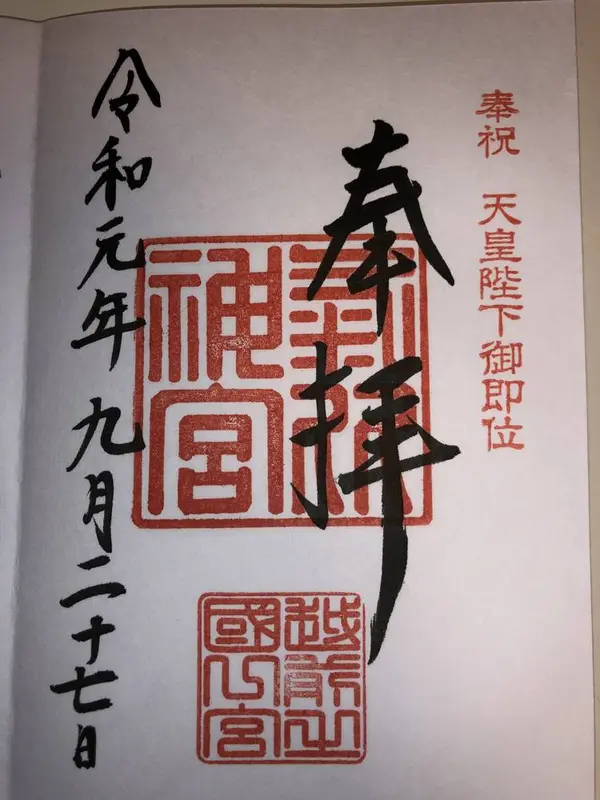 奉祝 天皇陛下御即位
奉拝
神宮
越前之
國宮
令和元年九月二十七日